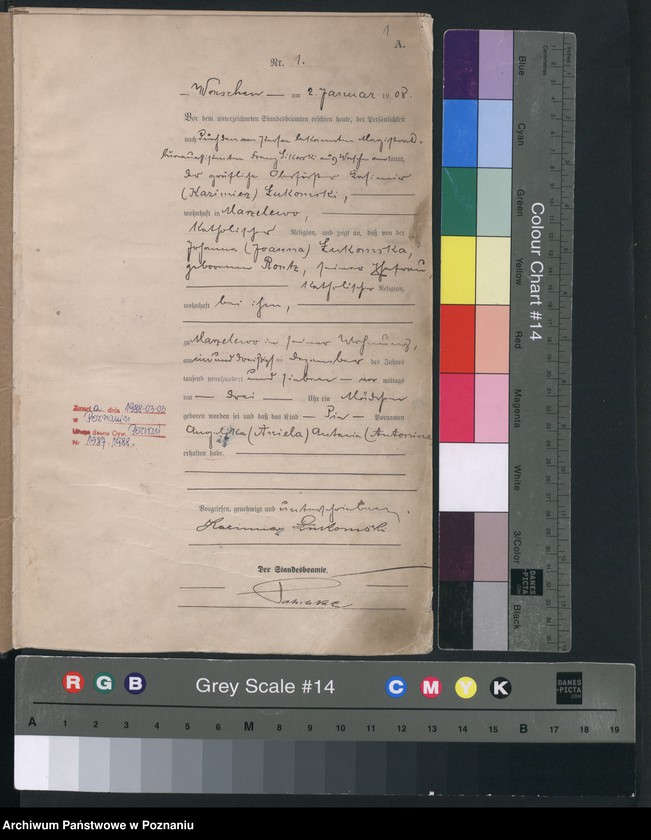 1
A.
Nr. 1.
Wreschen am 2. Januar 1908.
Vor dem unterzeichneten Standesbeamten erschien heute, der Persönlichkeit
nach durch den
bekannten Magistrat-
bureauassistenten Franz Sikorski aus Wreschen anerkannt,
der gräfliche Oberförster Casimir
(Kazimierz) Łukomski,
wohnhaft in Marzelewo,
katholischer Religion, und zeigte an, daß von der
Johanna (Joanna) Łukomska,
geborenen seiner Ehefrau,
katholischer Religion,
wohnhaft bei ihm,
zu Marzelewo in seiner Wohnung,
am einunddreißigsten Dezember des Jahres
tausend neunhundert und sieben vor mittags
um drei Uhr ein Mädchen
geboren worden sei und daß das Kind die Vornamen
Angelika (Aniela) Antonia (Antonina
erhalten habe.
Vorgelesen, genehmigt und unterschrieben.
Kazimierz Łukomski
Der Standesbeamte.
Zmarła dnia 1988-03-03
w Poznaniu
Urząd Stanu Cyw. Poznań
Nr 1587/1988.
Colour Chart #14
Centimetres
Blue
Cyan
Green
Yellow
Red
Magenta
White
3/Color
Black
DANES
-PICTA
.COM
R G B
Grey Scale #14
C M Y K
DANES
-PICTA
.COM
A 1 2 3 4 5 6 M 8 9 10 11 12 13 14 15 B 17 18 19
Archiwum Państwowe w Poznaniu